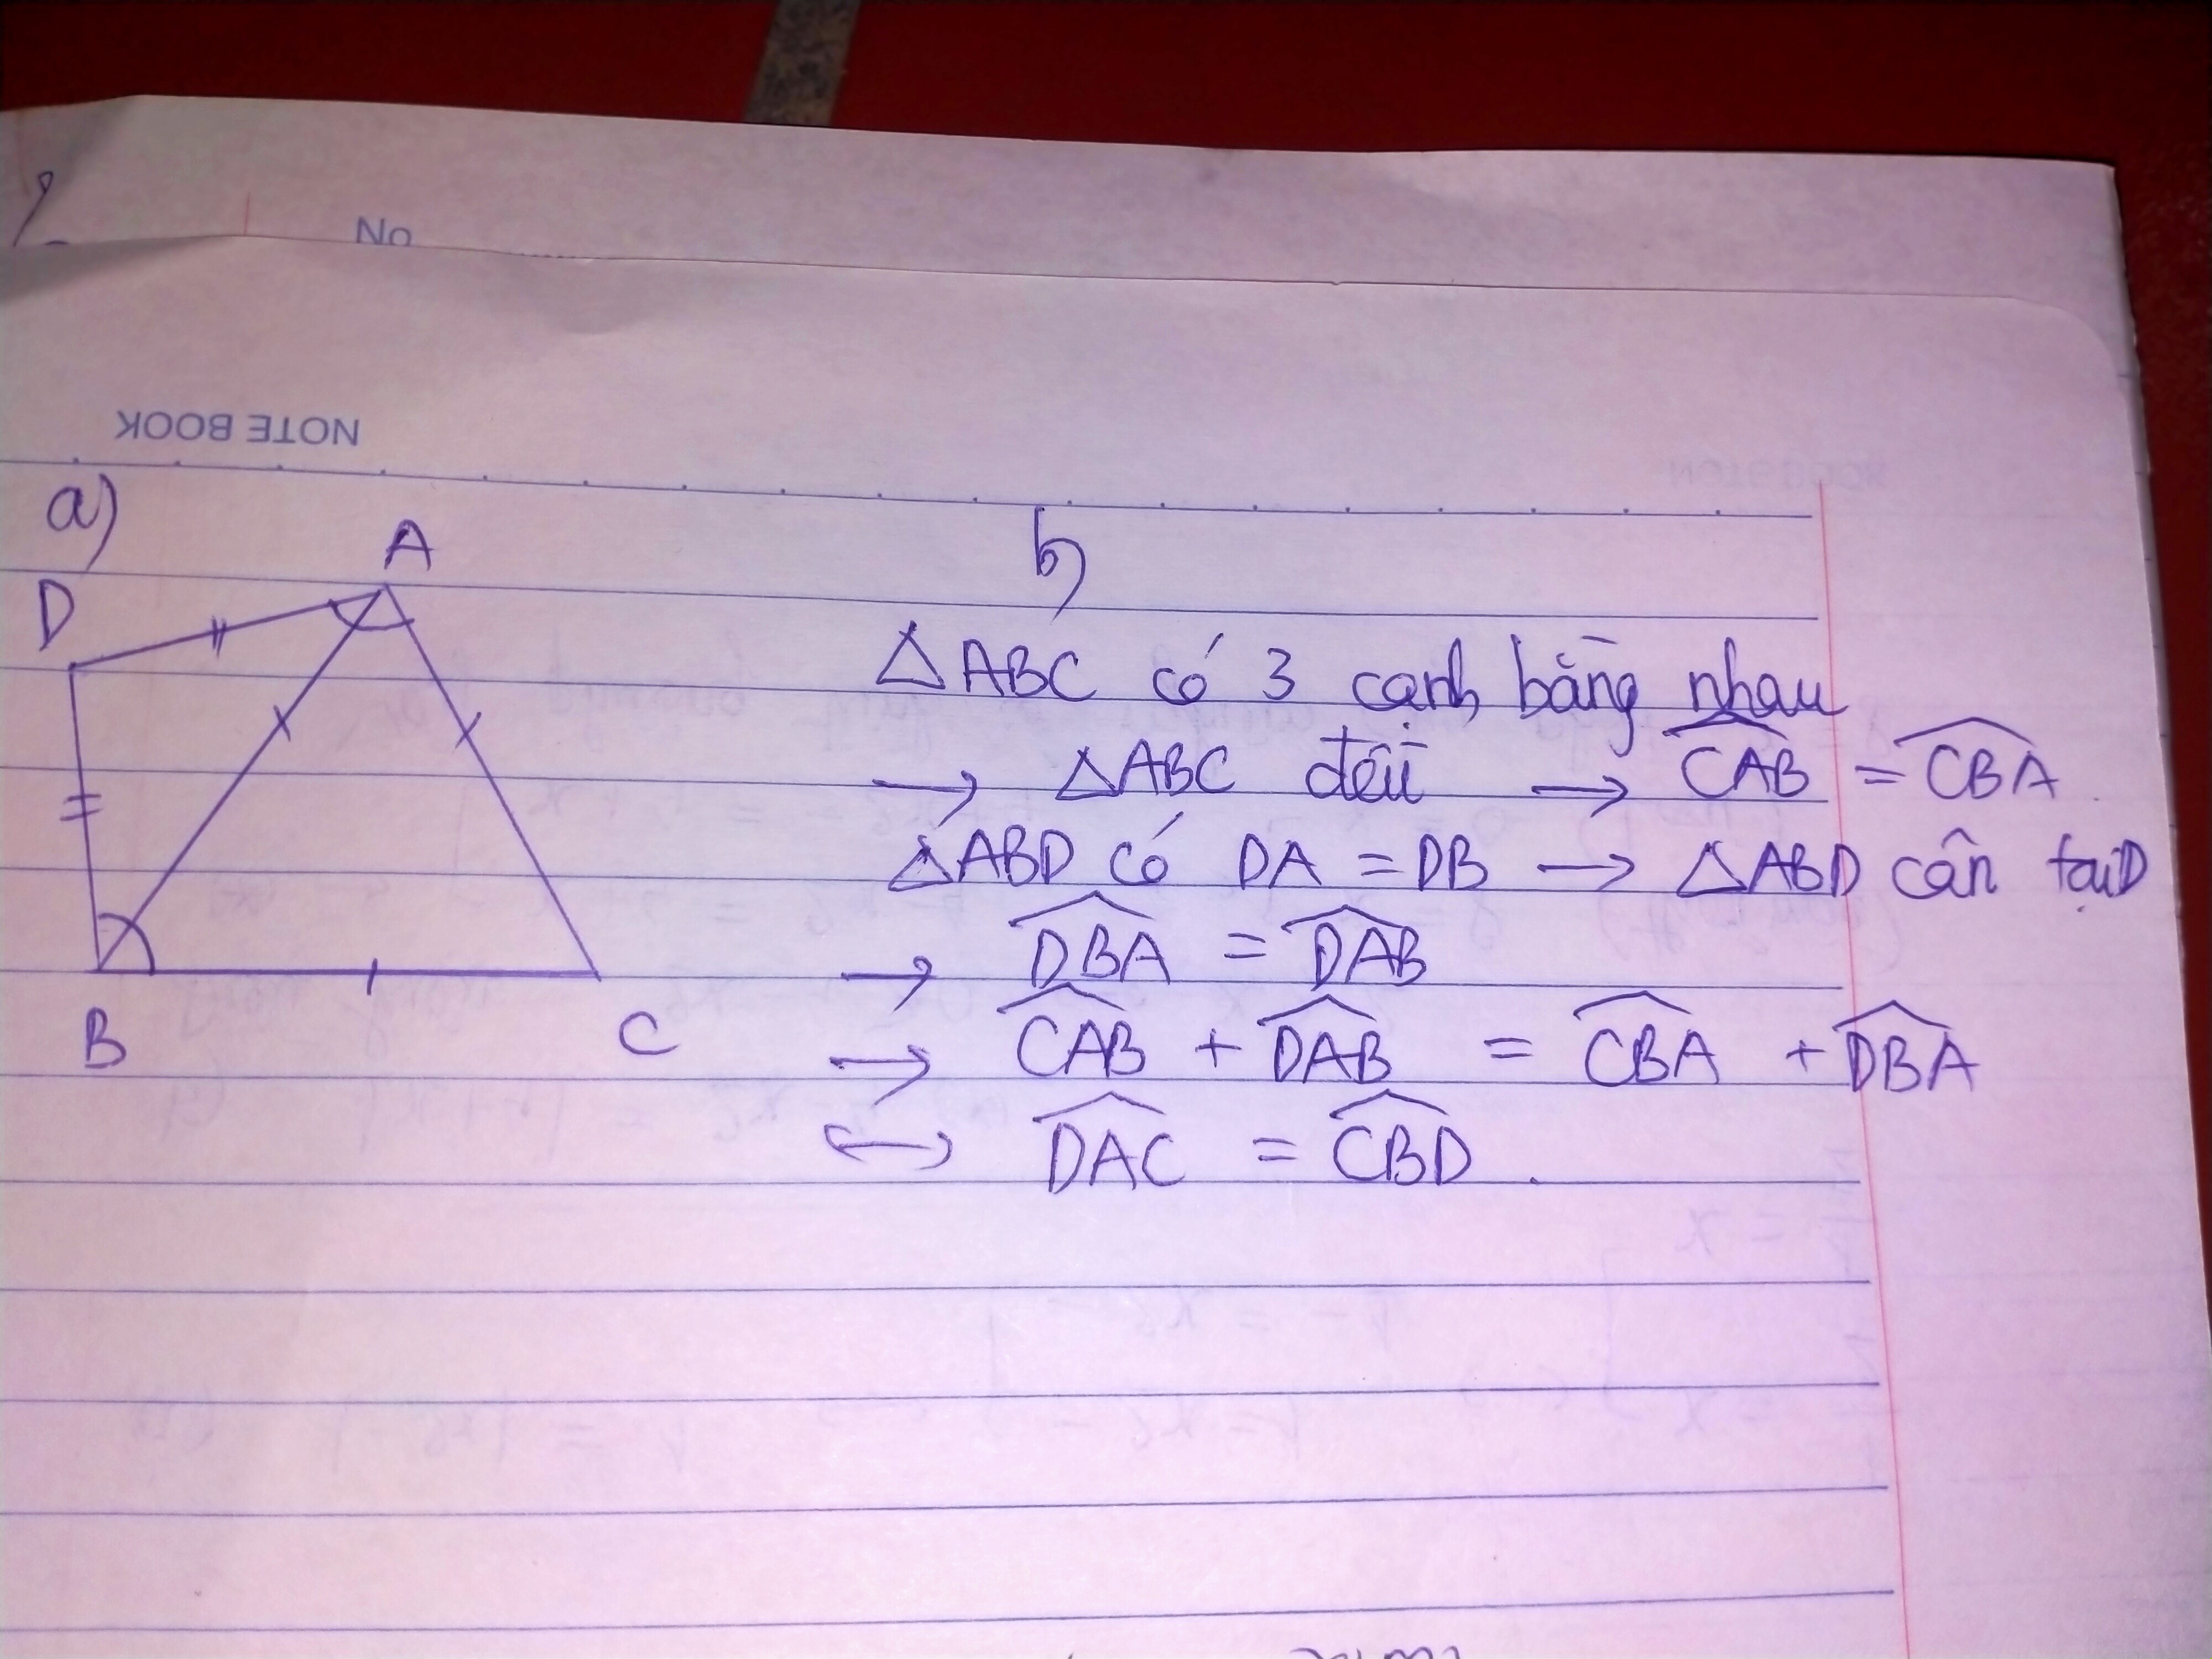 No
NOTE BOOK
a)
A
D
B
C
b)
△ABC có 3 cạnh bằng nhau
→ △ABC đều → \widehat{CAB} = \widehat{CBA}
△ABD có DA = DB → △ABD cân tại D
→ \widehat{DBA} = \widehat{DAB}
→ \widehat{CAB} + \widehat{DAB} = \widehat{CBA} + \widehat{DBA}
↔ \widehat{DAC} = \widehat{CBD}.